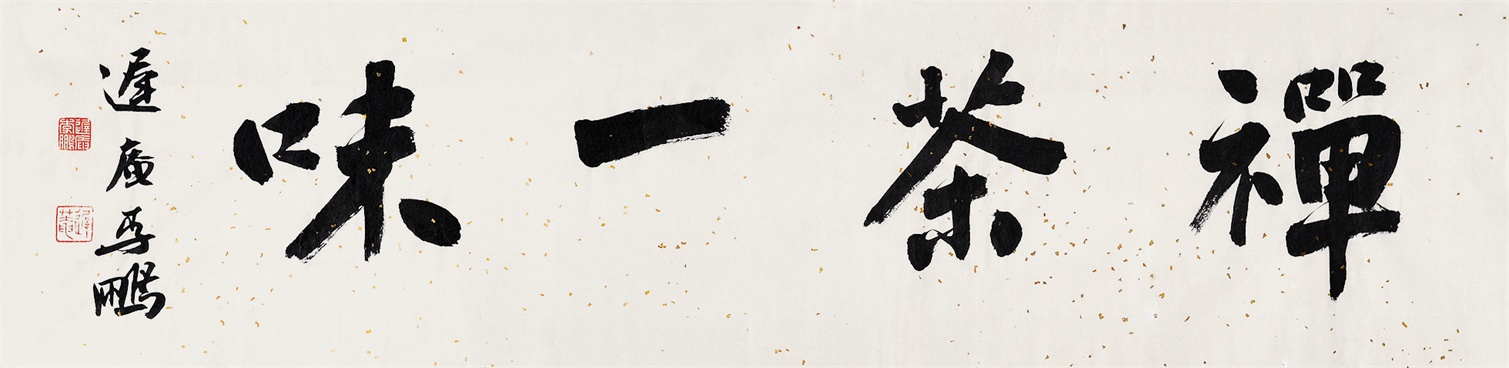 禪茶一味
遲庵鵬